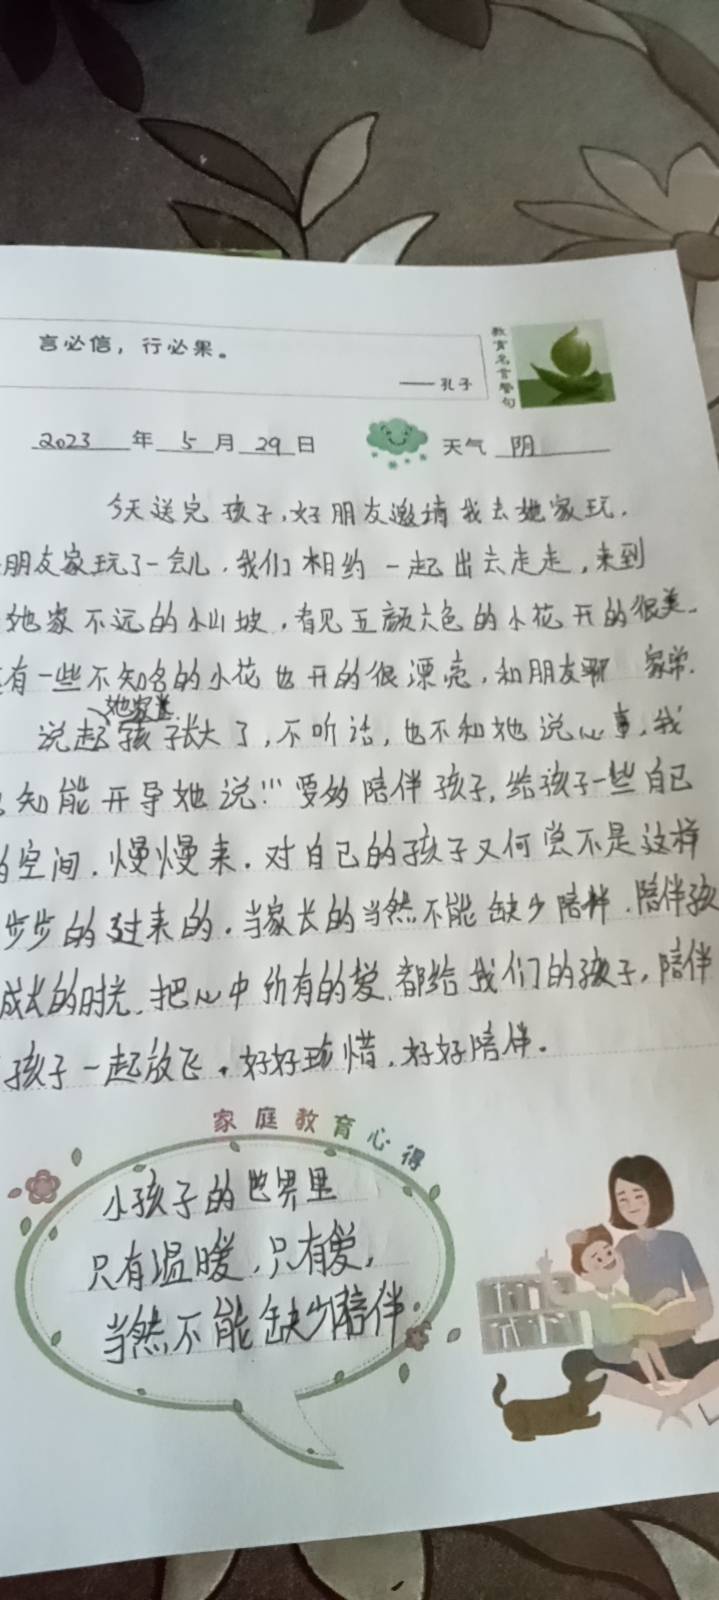 言必信，行必果。
——孔子
教育名言警句
2023年5月29日 天气 阴
今天送完孩子,好朋友邀请我去她家玩.
朋友家玩了一会儿.我们相约一起出去走走,来到
她家不远的小山坡,看见五颜六色的小花开的很美.
有一些不知名的小花也开的很漂亮,和朋友聊 家常.
说起她家孩子长大了,不听话,也不和她说心事,我
知能开导她说!!!要多陪伴孩子,给孩子一些自己
的空间.慢慢来.对自己的孩子又何尝不是这样
步步的过来的.当家长的当然不能缺少陪伴.陪伴孩
成长的时光.把心中所有的爱.都给我们的孩子,陪伴
孩子一起放飞.好好珍惜.好好陪伴.
家庭教育心得
小孩子的世界里
只有温暖.只有爱,
当然不能缺少陪伴.